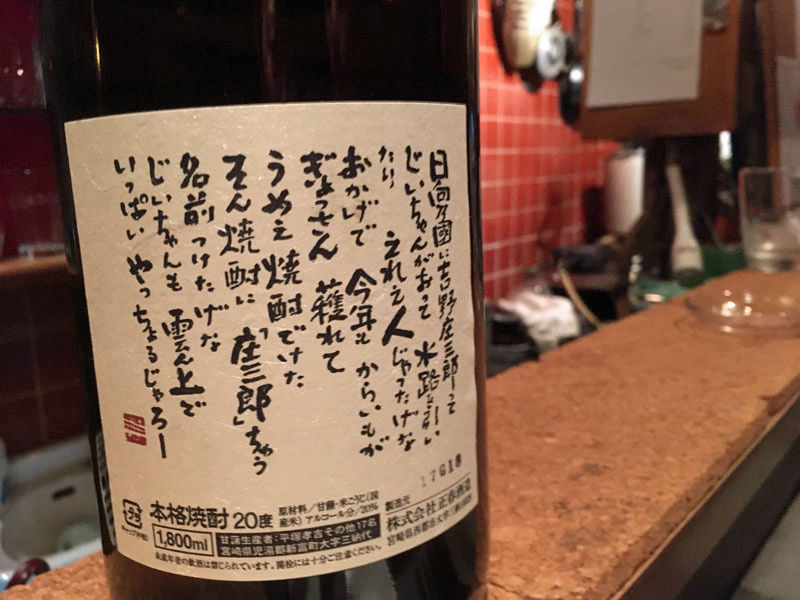 日向乃國に吉野庄三郎って
じいちゃんがおって 水路
たり えれえ人じゃったげな
おかげで 今年も からいもが
ぎょっさん 穫れて
うめえ焼酎でけた
そん焼酎に「庄三郎」ちゅう
名前つけたげな
じいちゃんも 雲ん上で
いっぱい やっちょるじゃろー
17G18
本格焼酎 20度
原材料/甘藷・米こうじ(国
産米) アルコール分/20%
1,800ml
甘藷生産者:平塚孝吉その他17名
宮崎県児湯郡新富町大字三納代
製造元
株式会社正春酒造
宮崎県西都市大字三宅
未成年者の飲酒は禁じられています。開栓には十分ご注意ください。